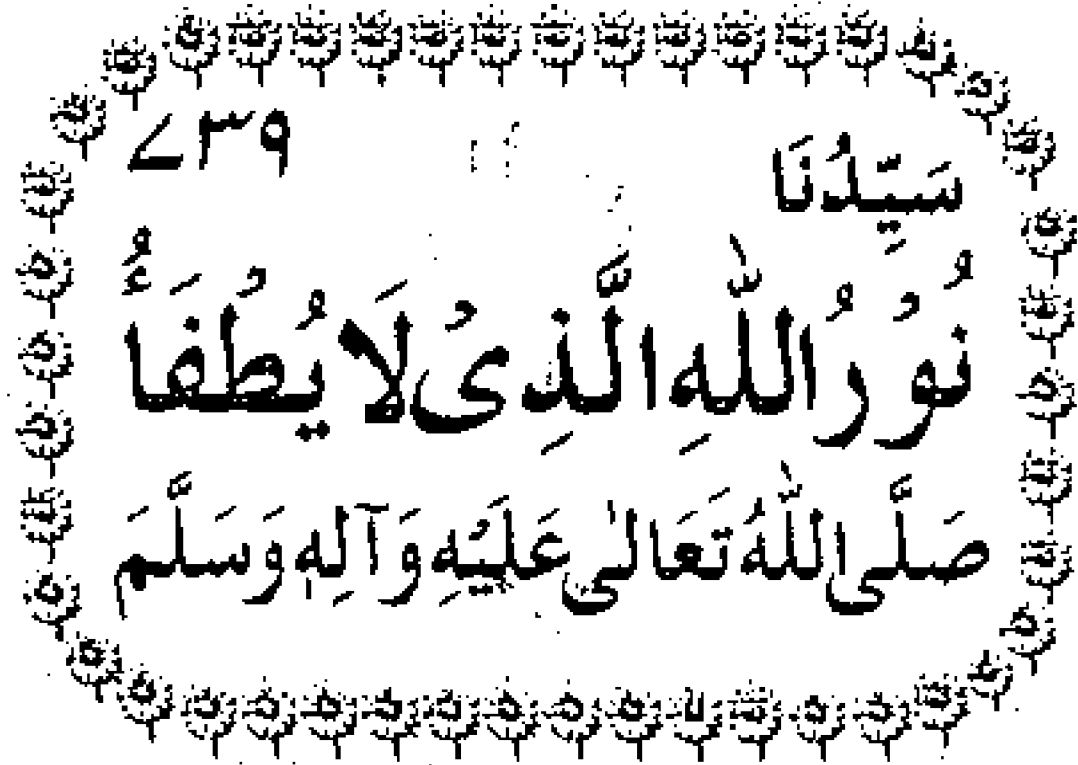 سَيِّدُنَا ٧٣٩
نُوْرُ اللّٰهِ الَّذِیْ لَا يُطْفَأُ
صَلَّی اللّٰهُ تَعَالٰی عَلَيْهِ وَآلِهٖ وَسَلَّمَ